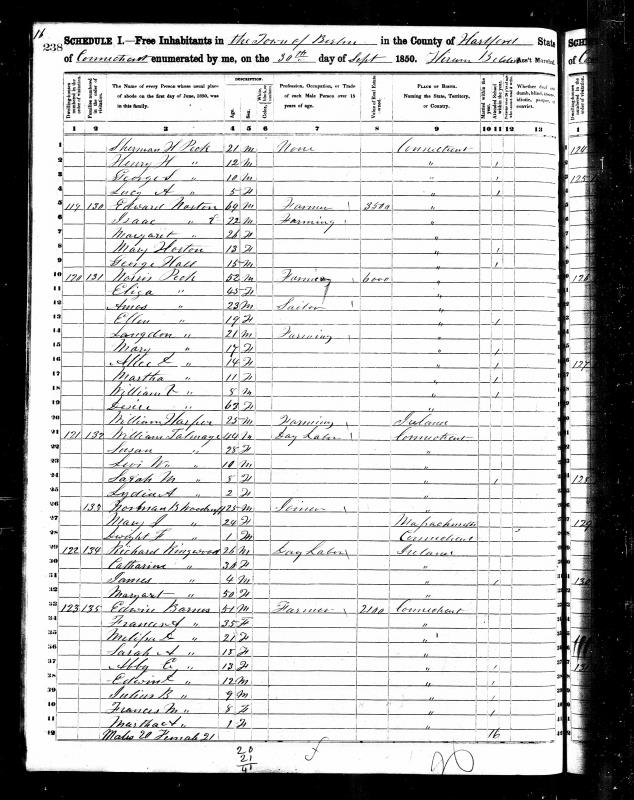 16
238
SCHEDULE I.—Free Inhabitants in the Town of Berlin in the County of Hartford State
of Connecticut enumerated by me, on the 30th day of Sept 1850. Hiram Ass't Marshal.
Dwelling-houses numbered in the order of visitation.
Families numbered in the order of visitation.
The Name of every Person whose usual place of abode on the first day of June, 1850, was in this family.
DESCRIPTION.
Age.
Sex.
Color
Profession, Occupation, or Trade of each Male Person over 15 years of age.
Value of Real Estate owned.
PLACE OF BIRTH. Naming the State, Territory, or Country.
Married within the year.
Attended School within the year.
1 2 3 4 5 6 7 8 9 10 11 12 13
1 Sherman H Peck 21 M None Connecticut
2 Henry H " 12 M " 1
3 George S " 10 M " 1
4 Lucy A " 5 F " 1
5 119 130 Edward Norton 69 M Farmer 3500 "
6 Isaac " 72 M Farming "
7 Margaret " 26 F "
8 Mary Horton 13 F " 1
9 George Hall 15 M " 1
10 120 131 Norris Peck 52 M Farming 6000 "
11 Eliza " 45 F "
12 Amos " 23 M Sailor "
13 Ellen " 19 F " 1
14 Langdon " 21 M Farming "
15 Mary " 17 F " 1
16 " 14 F " 1
17 Martha " 11 F " 1
18 William " 8 M " 1
19 Desire " 63 F "
20 William Harper 25 M Farming Ireland
21 121 132 William Talmage 44 M Day Labor Connecticut
22 Susan " 28 F "
23 Levi W " 10 M "
24 Sarah M " 8 F " 1
25 Lydia A " 2 F "
26 133 Norman B Woodruff 25 M Joiner "
27 Mary J " 24 F Massachusetts
28 Dwight F " 1 M Connecticut
29 122 134 Richard Ringwood 26 M Day Labor Ireland
30 Catharine " 30 F "
31 James " 4 M " 1
32 Margaret " 50 F "
33 123 135 Edwin Barnes 51 M Farmer 2100 Connecticut
34 Frances " 35 F "
35 " 21 F "
36 Sarah A " 15 F "
37 Abby C " 13 F " 1
38 Edwin " 12 M " 1
39 Julius B " 9 M " 1
40 Frances M " 8 F " 1
41 Martha A " 1 F "
42 Males 20 Female 21 16
20
21
41